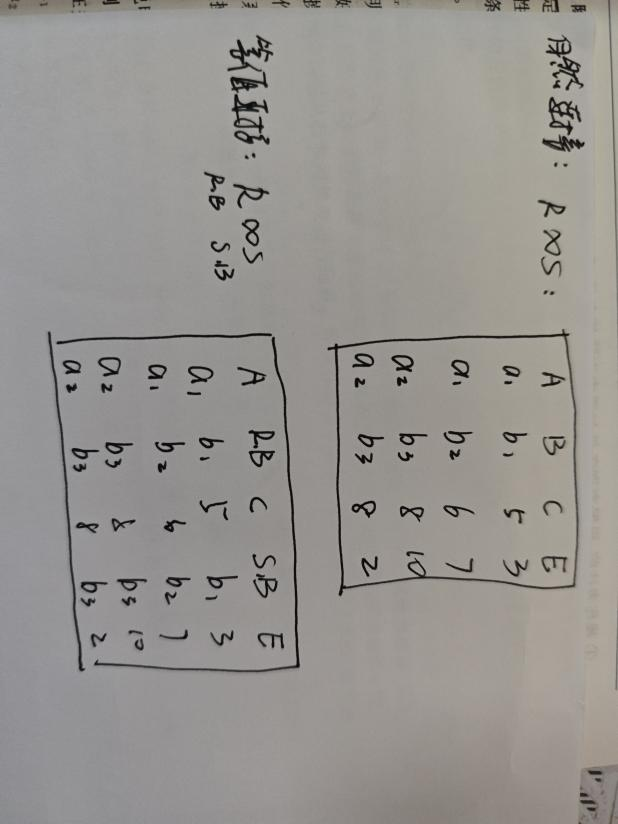 自然连接：R∞S：
A B C E
a₁ b₁ 5 3
a₁ b₂ 6 7
a₂ b₃ 8 10
a₂ b₃ 8 2
等值连接：R∞S
R.B S.B
A R.B C S.B E
a₁ b₁ 5 b₁ 3
a₁ b₂ 6 b₂ 7
a₂ b₃ 8 b₃ 10
a₂ b₃ 8 b₃ 2